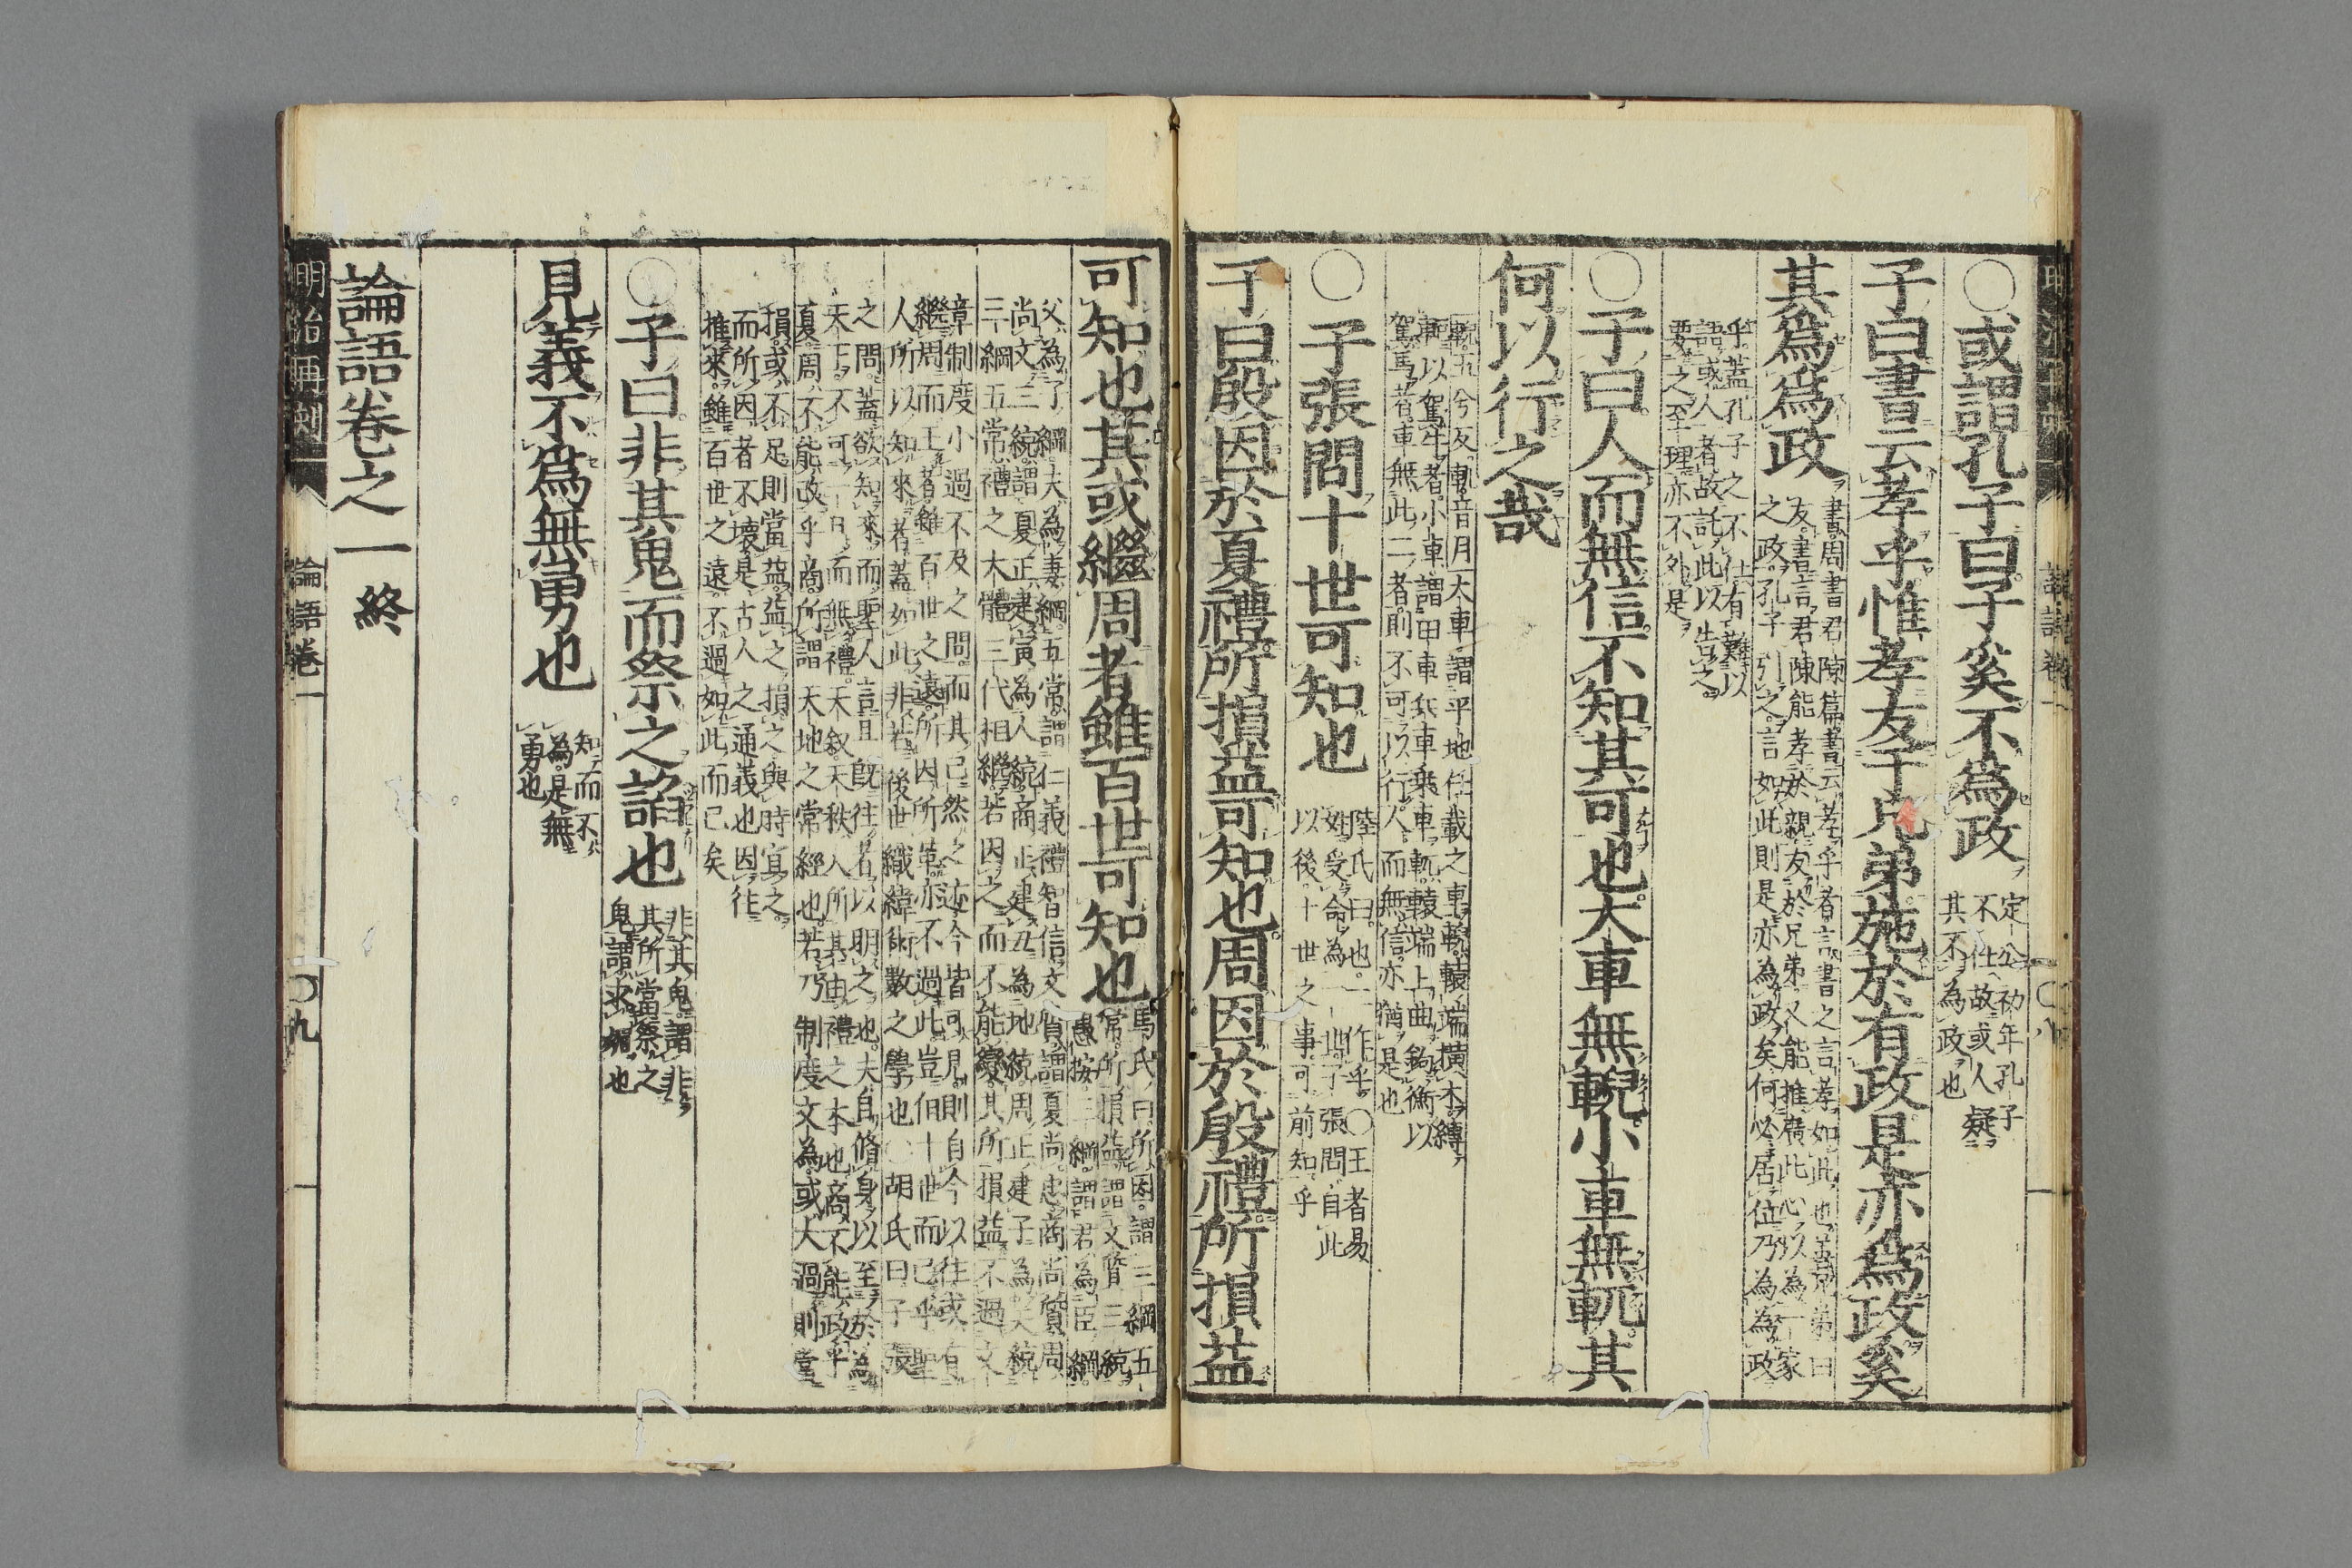 ○或謂孔子曰子奚不爲政
定公初年孔子
不仕故或人疑
其不爲政也
子曰書云孝乎惟孝友于兄弟施於有政是亦爲政奚
其爲爲政
書周書君陳篇書云孝乎者言書之言孝如此也善兄弟曰
友書言君陳能孝於親友於兄弟又能推廣此心以為一家
之政孔子引之言如此則是亦為政矣何必居位乃為為政
乎蓋孔子之不仕有難以
語或人者故託此以告之
要之至理亦不外是
○子曰人而無信不知其可也大車無輗小車無軏其
何以行之哉
輗五兮反軏音月大車謂平地任載之車輗轅端橫木縛
軶以駕牛者小車謂田車兵車乗車軏轅端上曲鉤衡以
駕馬者車無此二者則不可以行人而無信亦猶是也
○子張問十世可知也
陸氏曰也一作乎○王者易
姓受命為一世子張問自此
以後十世之事可前知乎
子曰殷因於夏禮所損益可知也周因於殷禮所損益
可知也其或繼周者雖百世可知也
馬氏曰所因謂三綱五
常所損益謂文質三統
愚按三綱謂君為臣綱
父為子綱夫為妻綱五常謂仁義禮智信文質謂夏尚忠商尚質周
尚文三統謂夏正建寅為人統商正建丑為地統周正建子為天統
三綱五常禮之大體三代相繼皆因之而不能變其所損益不過文
章制度小過不及之間而其已然之迹今皆可見則自今以往或有
繼周而王者雖百世之遠所因所革亦不過此豈但十世而已乎聖
人所以知來者蓋如此非若後世纖緯術數之學也○胡氏曰子張
之問蓋欲知來而聖人言其既往者以明之也夫自脩身以至於為
天下不可一日而無禮天叙天秩人所共由禮之本也商不能改乎
夏周不能改乎商所謂天地之常經也若乃制度文為或大過則當
損或不足則當益益之損之與時宜之
而所因者不壞是古人之通義也因往
推來雖百世之遠不過如此而已矣
○子曰非其鬼而祭之諂也
非其鬼謂非
其所當祭之
鬼謂求媚也
見義不爲無勇也
知而不
為是無
勇也
論語卷之一終
明治再刻
論語卷一
○九